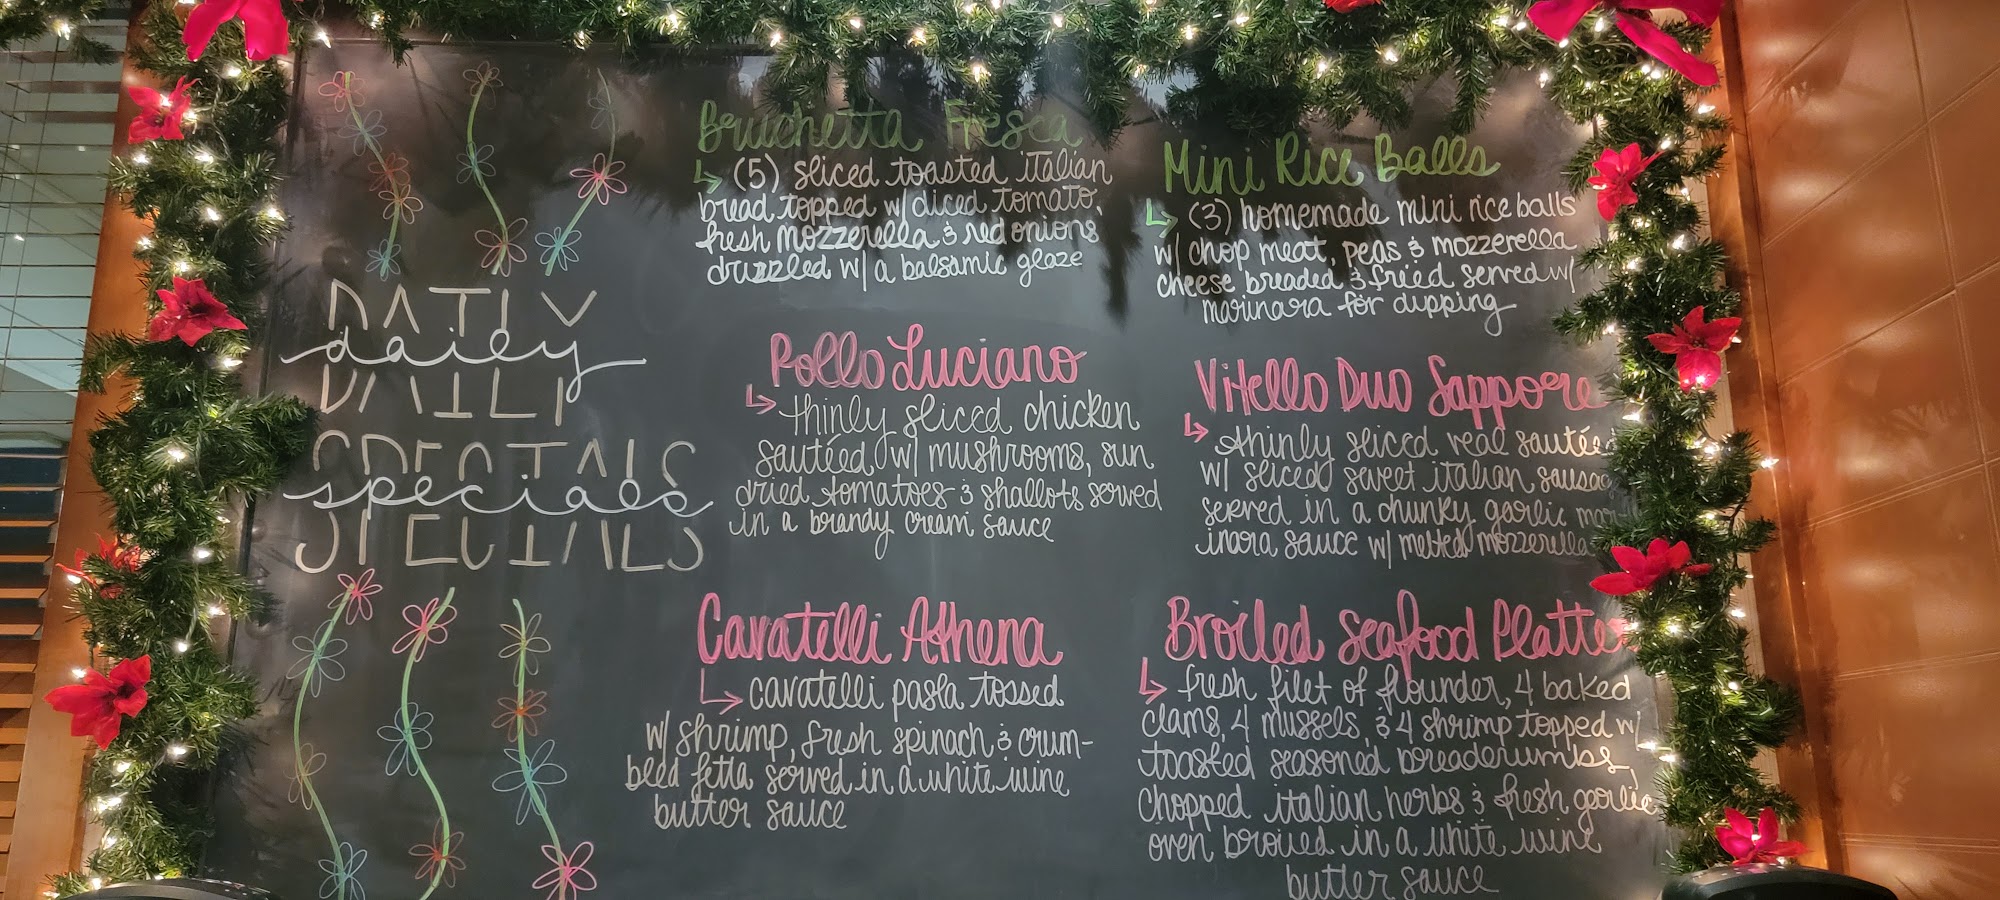 DAILY
daily
SPECIALS
specials
Bruchetta Fresca
(5) sliced toasted italian
bread topped w/ diced tomato,
fresh mozzerella & red onions
drizzled w/ a balsamic glaze
Mini Rice Balls
(3) homemade mini rice balls
w/ chop meat, peas & mozzerella
cheese breaded & fried served w/
marinara for dipping
Pollo Luciano
thinly sliced chicken
sautéed w/ mushrooms, sun
dried tomatoes & shallots served
in a brandy cream sauce
Vitello Duo Sappore
thinly sliced veal sautéed
w/ sliced sweet italian sausag
served in a chunky garlic mar-
inara sauce w/ melted mozzerella
Cavatelli Athena
cavatelli pasta tossed
w/ shrimp, fresh spinach & crum-
bled fetta served in a white wine
butter sauce
Broiled Seafood Platter
fresh filet of flounder, 4 baked
clams, 4 mussels, & 4 shrimp topped w/
toasted seasoned breadcrumbs,
chopped italian herbs & fresh garlic
oven broiled in a white wine
butter sauce